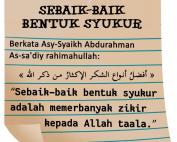 SEBAIK-BAIK
BENTUK SYUKUR
Berkata Asy-Syaikh Abdurahman
As-sa'diy rahimahullah:
« أفضل أنواع الشكر الإكثار من ذكر الله »
"Sebaik-baik bentuk syukur
adalah memerbanyak zikir
kepada Allah taala."